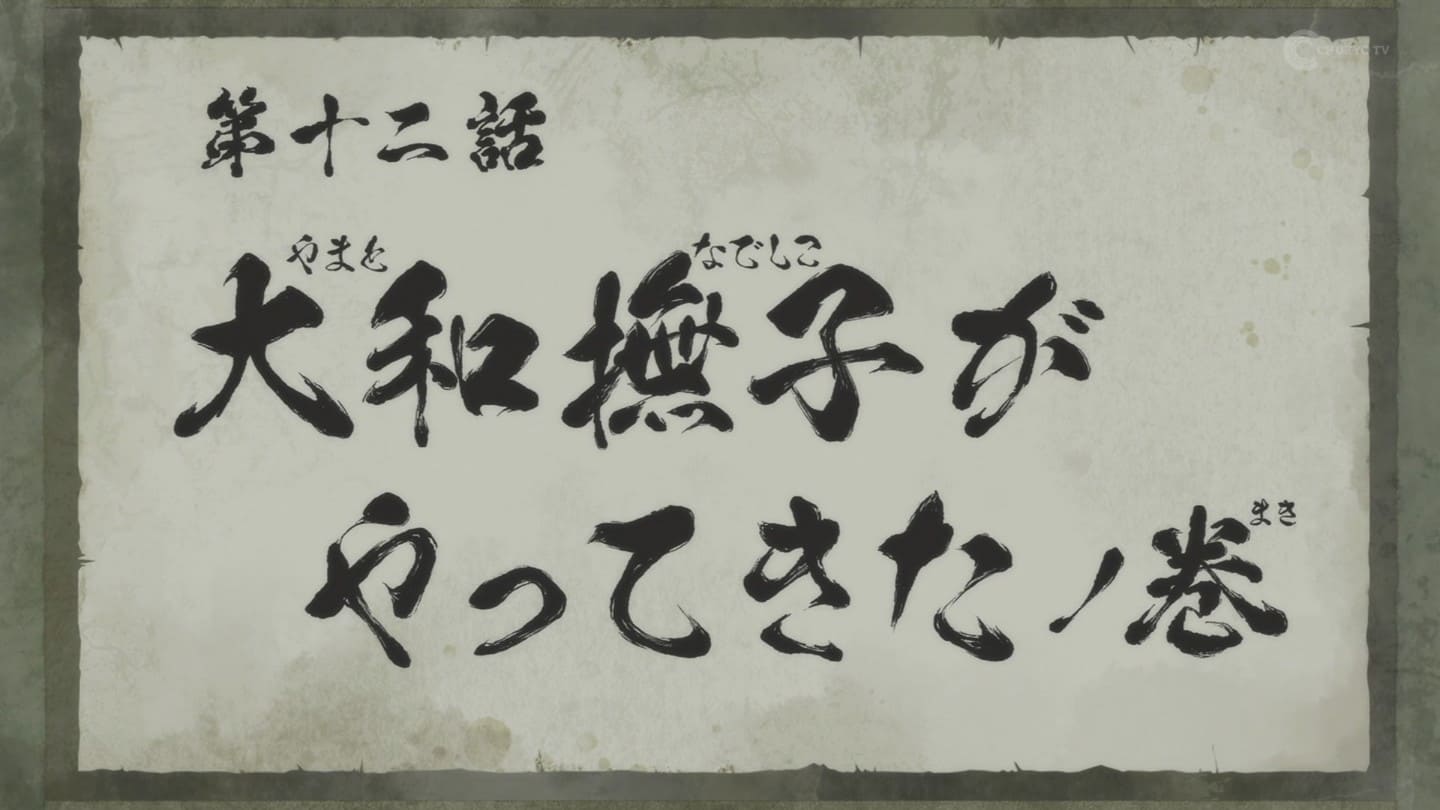 CHUKYO TV
第十二話
やまと なでしこ
大和撫子が
まき
やってきたノ巻